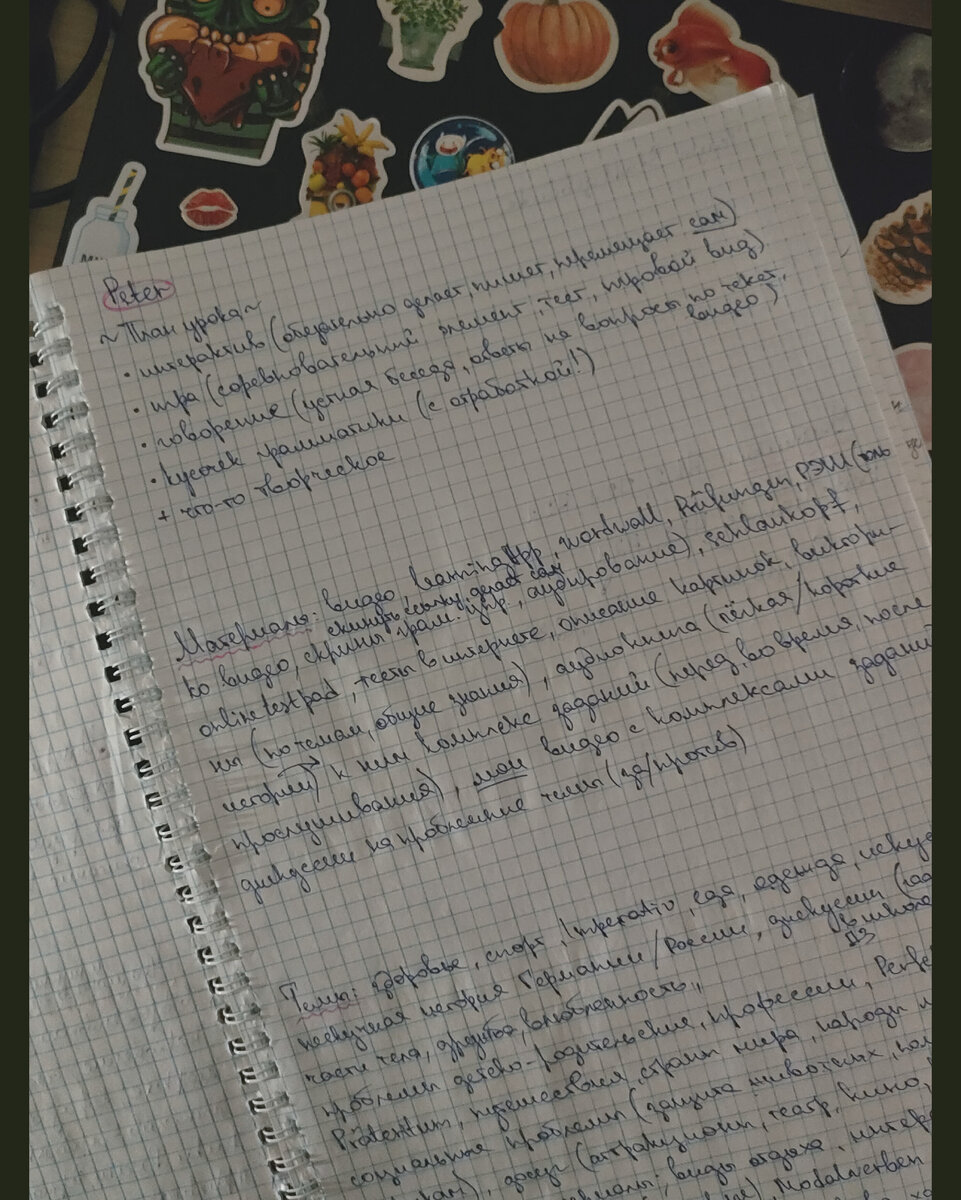 Peter
~ План урока ~
• интерактив (обязательно делает, пишет, перемещает сам)
• игра (соревновательный элемент, тест, игровой вид)
• говорение (устная беседа, ответы на вопросы по текст,
видео)
• кусочек грамматики (с отработкой!)
+ что-то творческое
Материалы: видео, learningApp, wordwall, Prüfungen, РЭШ (толь
скинуть ссылку, делает сам
ко видео, скрины грам. упр, аудирование), schlaukopf,
onlinetestpad, тесты в интернете, описание картинок, виктори-
ны (по темам, общие знания), аудиокнига (лёгкая/короткие
истории) к ним комплекс заданий (перед, во время, после
прослушивания), мои видео с комплексами заданий
дискуссии на проблемные темы (за/против)
Темы: здоровье, спорт, Imperativ, еда, одежда, искус
нескучная история Германии/России, дискуссии
в школе
ДЗ
части тела, дружба, влюбленность,
проблемы детско-родительские, профессии, Perfe
Präteritum, путешествия, страны мира, народы
социальные проблемы (защита животных,
досуг (аттракционы, театр, кино,
виды отдыха, интер
Modalverben